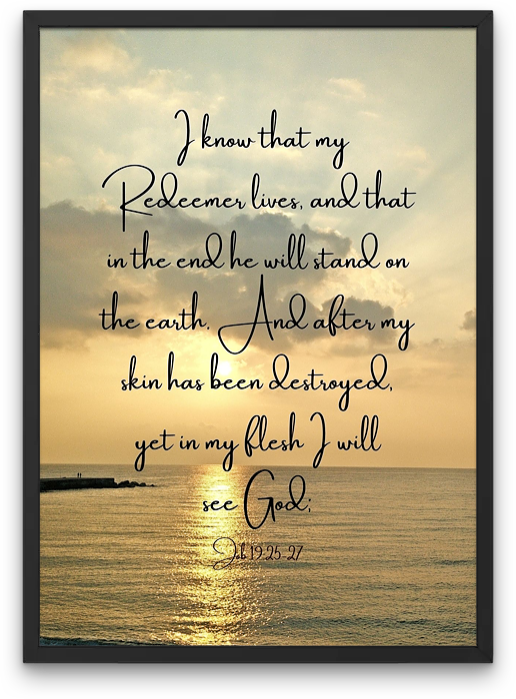 I know that my
Redeemer lives, and that
in the end he will stand on
the earth. And after my
skin has been destroyed,
yet in my flesh I will
see God;
Job 19:25-27